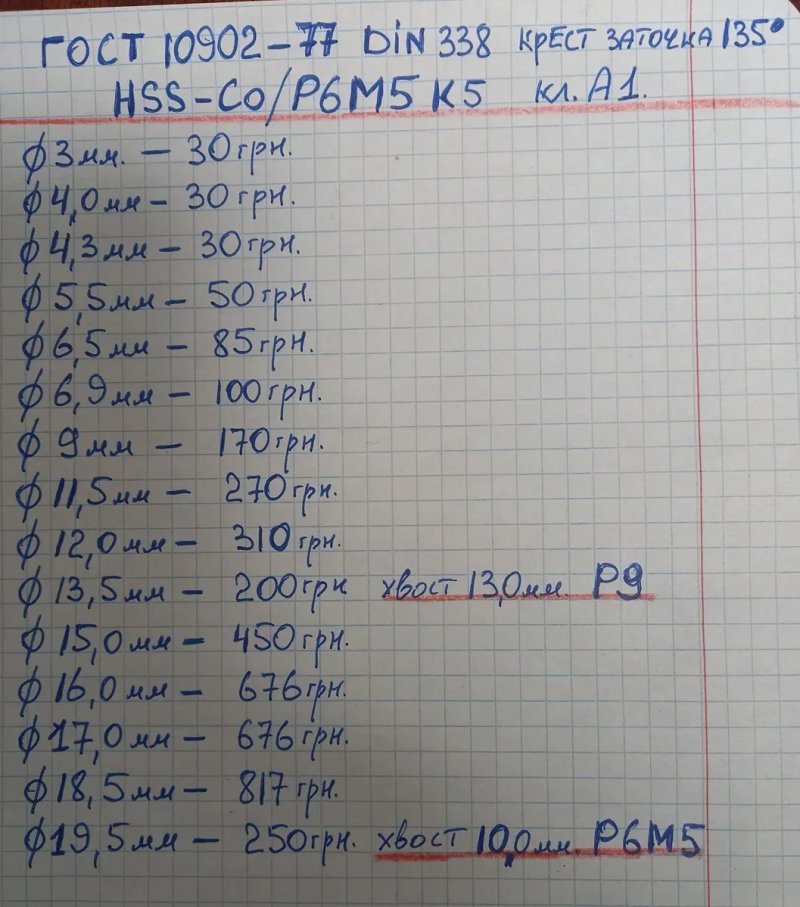 ГОСТ 10902-77 DiN 338 КРЕСТ ЗАТОЧКА 135°
HSS-Co/Р6М5 К5 кл. А1.
ϕ 3мм. - 30грн.
ϕ 4,0мм - 30грн.
ϕ 4,3мм - 30грн.
ϕ 5,5мм - 50грн.
ϕ 6,5мм - 85грн.
ϕ 6,9мм - 100грн.
ϕ 9мм - 170грн.
ϕ 11,5мм - 270грн.
ϕ 12,0мм - 310грн.
ϕ 13,5мм - 200грн хвост 13,0мм. Р9
ϕ 15,0мм - 450грн.
ϕ 16,0мм - 676грн.
ϕ 17,0мм - 676грн.
ϕ 18,5мм - 817грн.
ϕ 19,5мм - 250грн. хвост 10,0мм. Р6М5